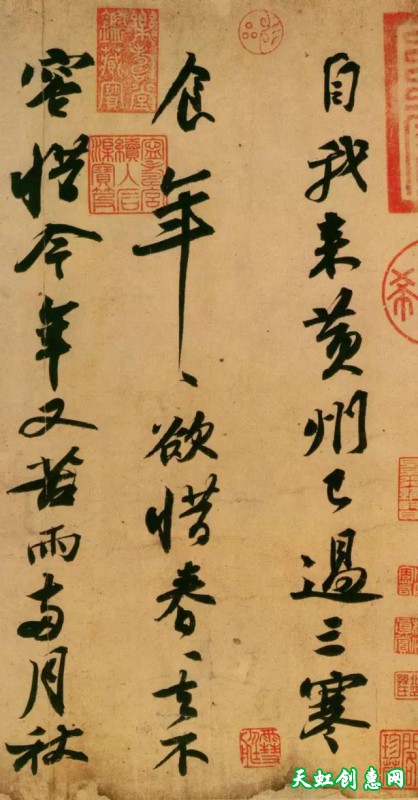 自我來黃州已過三寒
食年〻欲惜春〻去不
容惜今年又苦雨兩月秋
天虹创惠网